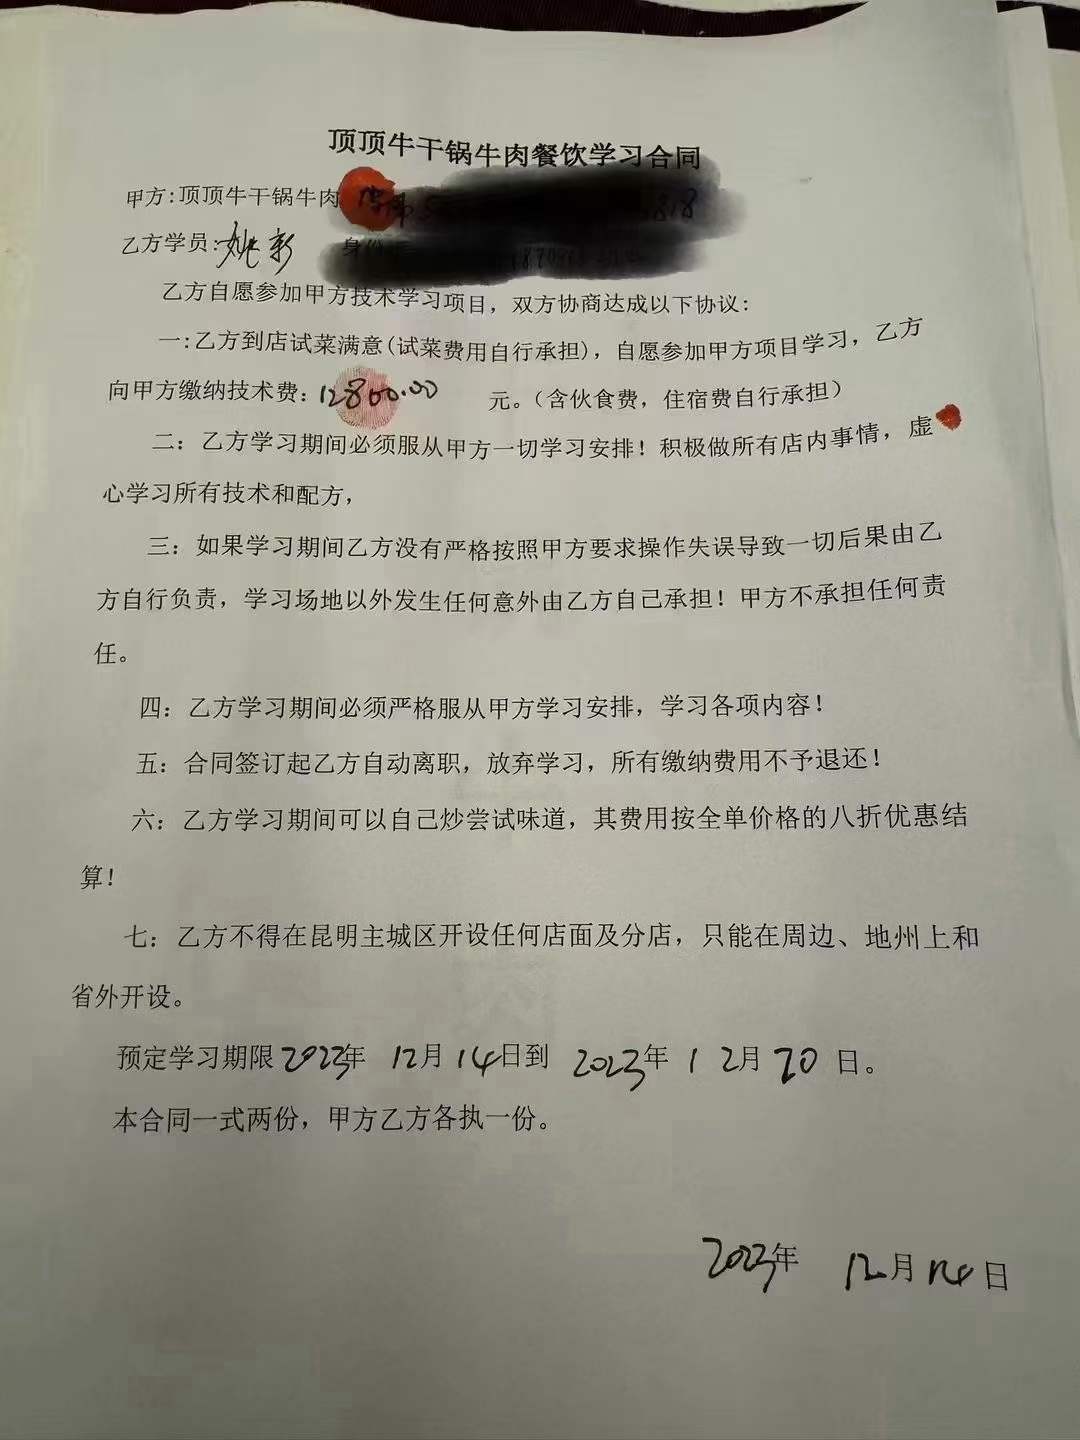 顶顶牛干锅牛肉餐饮学习合同
甲方:顶顶牛干锅牛肉
乙方学员:姚彩
乙方自愿参加甲方技术学习项目，双方协商达成以下协议:
一:乙方到店试菜满意(试菜费用自行承担)，自愿参加甲方项目学习，乙方
向甲方缴纳技术费：12800.00 元。（含伙食费，住宿费自行承担）
二：乙方学习期间必须服从甲方一切学习安排！积极做所有店内事情，虚
心学习所有技术和配方，
三：如果学习期间乙方没有严格按照甲方要求操作失误导致一切后果由乙
方自行负责，学习场地以外发生任何意外由乙方自己承担！甲方不承担任何责
任。
四：乙方学习期间必须严格服从甲方学习安排，学习各项内容！
五：合同签订起乙方自动离职，放弃学习，所有缴纳费用不予退还！
六：乙方学习期间可以自己炒尝试味道，其费用按全单价格的八折优惠结
算！
七：乙方不得在昆明主城区开设任何店面及分店，只能在周边、地州上和
省外开设。
预定学习期限2023年 12月14日到 2023年 12月20日。
本合同一式两份，甲方乙方各执一份。
2023年 12月14日